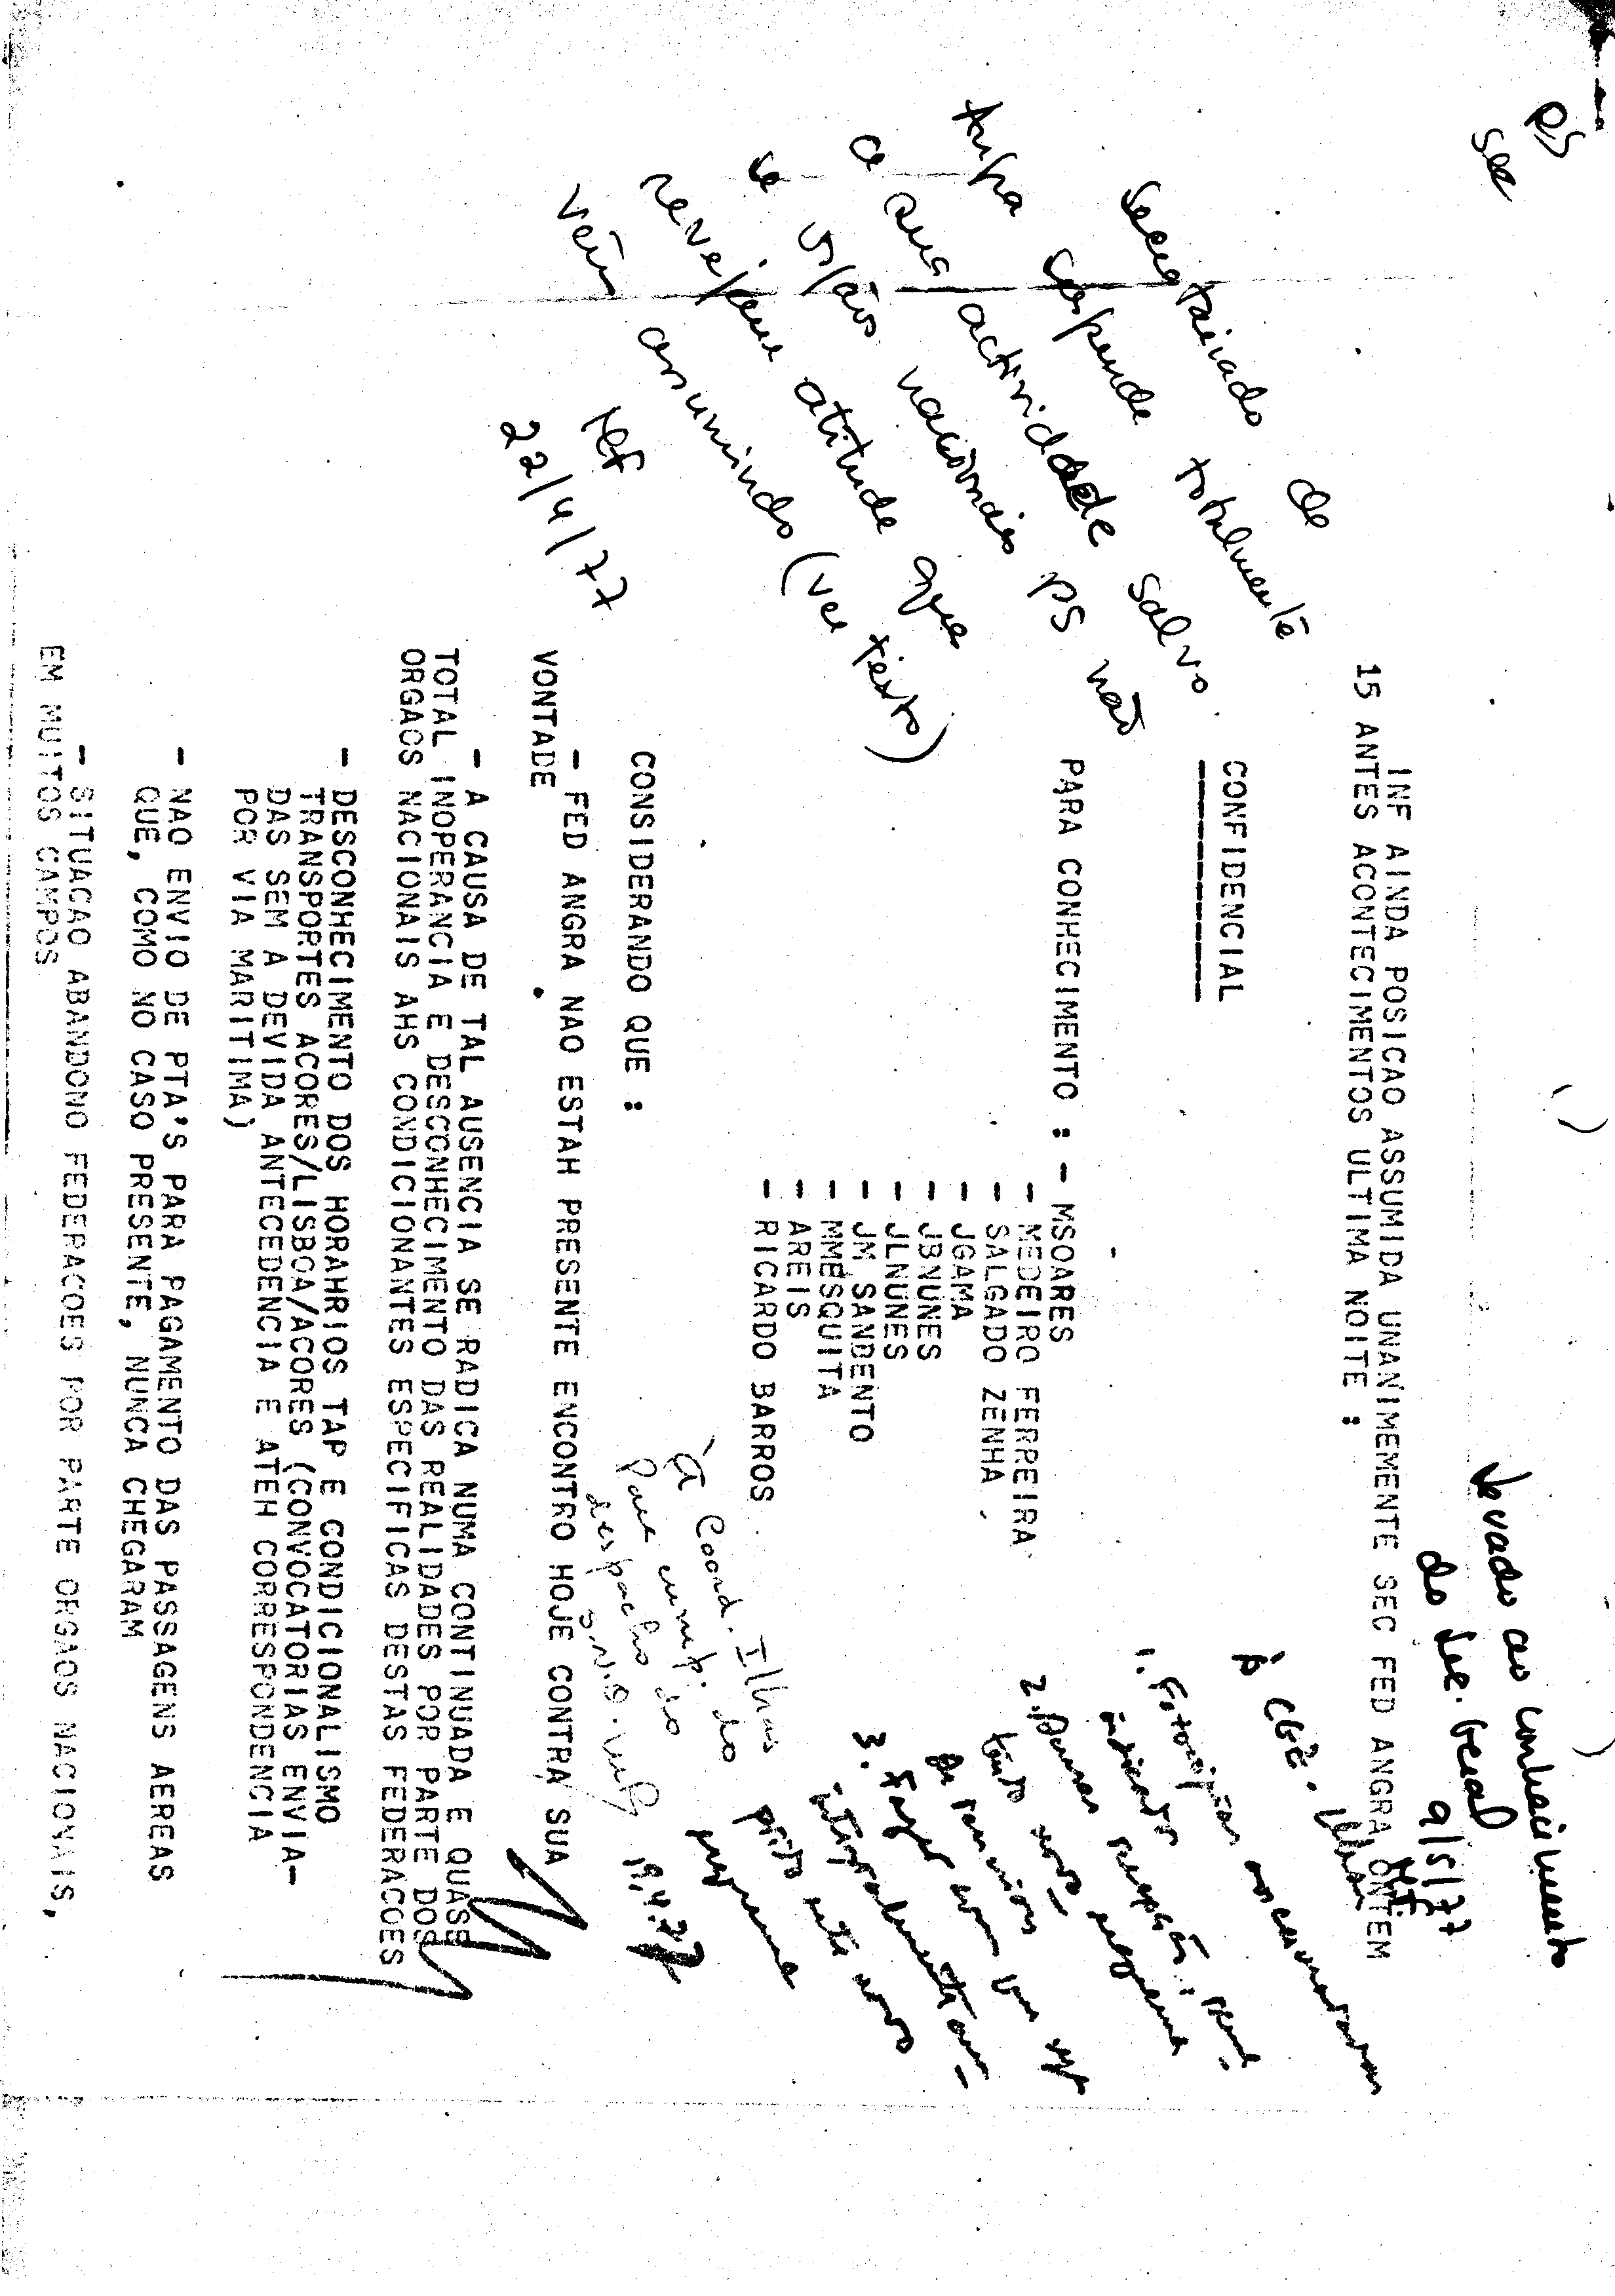 PS
see
Levado ao conhecimento
do Sec. Geral
9/5/77
INF AINDA POSICAO ASSUMIDA UNANIMEMENTE SEC FED ANGRA ONTEM
15 ANTES ACONTECIMENTOS ULTIMA NOITE :
CONFIDENCIAL
PARA CONHECIMENTO : - MSOARES
- MEDEIRO FERREIRA
- SALGADO ZENHA
- JGAMA
- JBNUNES
- JLNUNES
- JM SANBENTO
- MMESQUITA
- AREIS
- RICARDO BARROS
Secretariado de
suspende totalmente
a sua actividade salvo
se órgãos nacionais PS não
revejam atitude que
vêm assumindo (ver texto)
22/4/77
1. Fotocópias
indicados
3. Fazer com que
integralmente
À Coord. Ilhas
para cump. do
despacho do
19.4.77
CONSIDERANDO QUE :
- FED ANGRA NAO ESTAH PRESENTE ENCONTRO HOJE CONTRA SUA
VONTADE
- A CAUSA DE TAL AUSENCIA SE RADICA NUMA CONTINUADA E QUASE
TOTAL INOPERANCIA E DESCONHECIMENTO DAS REALIDADES POR PARTE DOS
ORGAOS NACIONAIS AHS CONDICIONANTES ESPECIFICAS DESTAS FEDERACOES
- DESCONHECIMENTO DOS HORAHRIOS TAP E CONDICIONALISMO
TRANSPORTES ACORES/LISBOA/ACORES (CONVOCATORIAS ENVIA-
DAS SEM A DEVIDA ANTECEDENCIA E ATEH CORRESPONDENCIA
POR VIA MARITIMA)
- NAO ENVIO DE PTA'S PARA PAGAMENTO DAS PASSAGENS AEREAS
QUE, COMO NO CASO PRESENTE, NUNCA CHEGARAM
- SITUACAO ABANDONO FEDERACOES POR PARTE ORGAOS NACIONAIS,
EM MUITOS CAMPOS